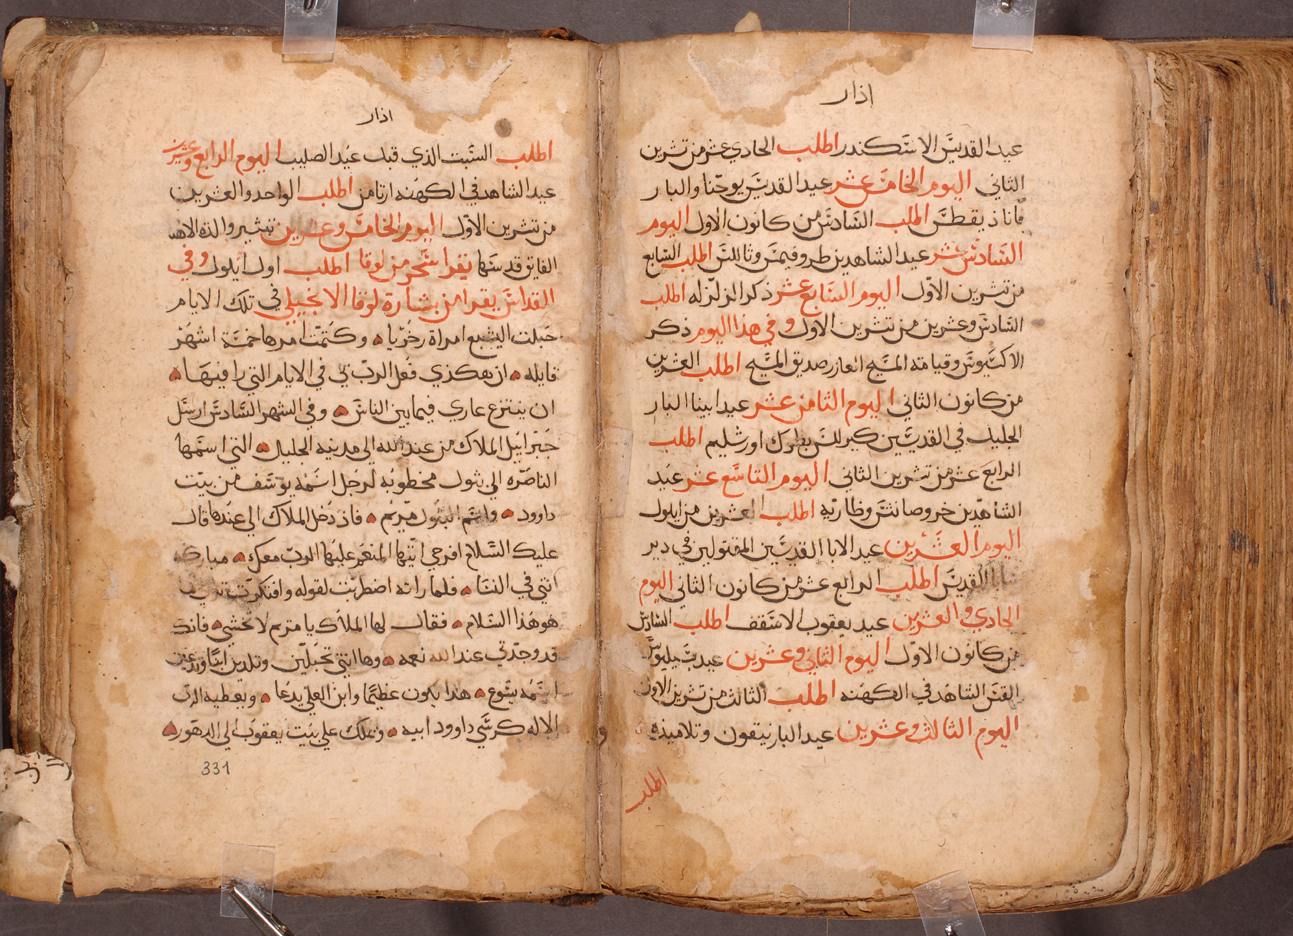 اذار
عيد القديس الاسكندر اطلب الحادي عشر من تشرين
الثاني اليوم الخامس عشر عيد القديس يوحنا والبار
اطلب السادس من كانون الاول اليوم
السادس عشر عيد الشاهدين طروفيمس وثاللس اطلب السابع
من تشرين الاول اليوم السابع عشر ذكر الزلزله اطلب
السادس وعشرين من تشرين الاول وفي هذا اليوم ذكر
وقيامة المسيح العازر صديق المسيح اطلب العشرين
من كانون الثاني اليوم الثامن عشر عيد ابينا البار
الجليل في القديسين كيرللس بطرك اورشليم اطلب
الرابع عشر من تشرين الثاني اليوم التاسع عشر عيد
الشاهدين خروصانثس وظاريه اطلب العشرين من ايلول
اليوم العشرين عيد الابا القديسين المقتولين في دير
القديس اطلب الرابع عشر من كانون الثاني اليوم
الحادي والعشرين عيد يعقوب الاسقف اطلب السادس
من كانون الاول اليوم الثاني وعشرين عيد بسيليوس
القس الشاهد في الكهنه اطلب الثالث من تشرين الاول
اليوم الثالث وعشرين عيد البار نيقون وتلاميذه
اطلب
اذار
اطلب السبت الذي قبل عيد الصليب اليوم الرابع وعشرين
عيد الشاهد في الكهنه ارتامن اطلب الواحد والعشرين
من تشرين الاول اليوم الخامس وعشرين تبشير والدة الاله
الفايق قدسها يقرا سحر من لوقا اطلب اول ايلول وفي
القداس يقرا من بشارة لوقا الانجيلي في تلك الايام
حبلت اليشبع امراة زخريا وكتمت امرها خمسة اشهر
قايله ان هكذي فعل الرب بي في الايام التي
ان ينتزع عاري فيما بين الناس وفي الشهر السادس ارسل
جبرايل الملاك من عند الله الي مدينه الجليل التي اسمها
الناصره الي بتول مخطوبه لرجل اسمه يوسف من بيت
داوود واسم البتول مريم فاذ دخل الملاك الي عندها قال
عليك السلام افرحي ايتها المنعم عليها الرب معكي مباركه
انتي في النسا فلما راته اضطربت لقوله وافتكرت
هو هذا السلام فقال لها الملاك يا مريم لا تخشي فانك
قد وجدتي عند الله نعمه وها انتي تحبلين وتلدين ابنا وتدعين
اسمه يسوع هذا يكون عظيما وابن العلي يدعا ويعطيه الرب
الاله كرسي داوود ابيه ويملك علي بيت يعقوب الي الدهور
331